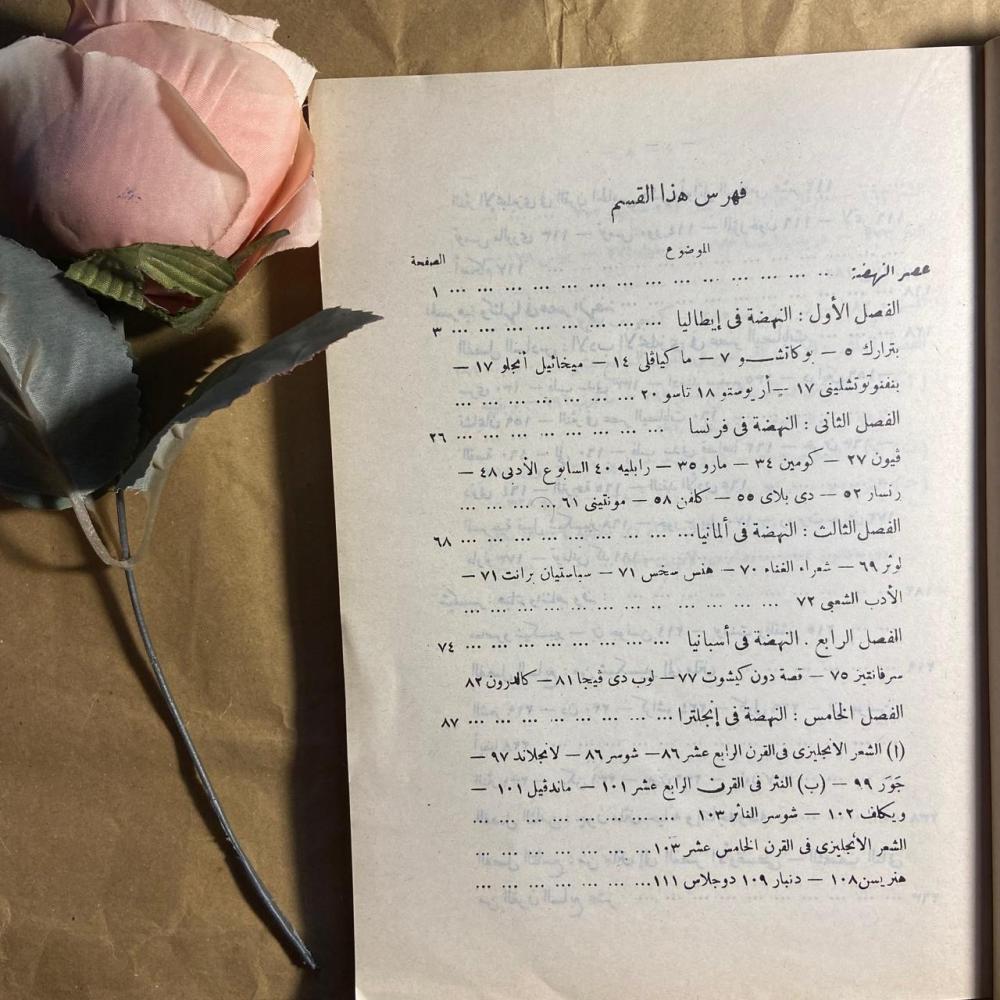 فهرس هذا القسم
الموضوع الصفحة
عصر النهضة ... ... ... ... ... ... ... ... ... ... ... ... ... ... ١
الفصل الأول : النهضة فى إيطاليا ... ... ... ... ... ... ... ... ٣
بترارك ٥ — بوكاتشو ٧ — ماكياڤلى ١٤ — ميخائيل أنجلو ١٧ —
بنفنوتوتشلينى ١٧ — أريوستو ١٨ تاسو ٢٠ ... ... ... ... ... ... ... ...
الفصل الثانى : النهضة فى فرنسا ... ... ... ... ... ... ... ... ٢٦
ڤيون ٢٧ — كومين ٣٤ — مارو ٣٥ — رابليه ٤٠ السابوع الأدبى ٤٨ —
رنسار ٥٢ — دى بلاى ٥٥ — كلفن ٥٨ — مونتينى ٦١ ... ... ... ...
الفصل الثالث : النهضة فى ألمانيا ... ... ... ... ... ... ... ... ٦٨
لوثر ٦٩ — شعراء الغناء ٧٠ — هنس سخس ٧١ — سباستيان برانت ٧١ —
الأدب الشعبى ٧٢ ... ... ... ... ... ... ... ... ... ... ...
الفصل الرابع . النهضة فى أسبانيا ... ... ... ... ... ... ... ... ٧٤
سرفانتيز ٧٥ — قصة دون كيشوت ٧٧ — لوب دى ڤيجا ٨١ — كالدرون ٨٢
الفصل الخامس : النهضة فى إنجلترا ... ... ... ... ... ... ... ... ٨٧
(ا) الشعر الانجليزى فى القرن الرابع عشر ٨٦ — شوسر ٨٦ — لانجلاند ٩٧ —
جَوَر ٩٩ — (ب) النثر فى القرن الرابع عشر ١٠١ — ماندڤيل ١٠١ —
ويكلف ١٠٢ — شوسر الناثر ١٠٣ ... ... ... ... ... ... ... ...
الشعر الأنجليزى فى القرن الخامس عشر ١٠٣ ... ... ... ... ... ... ...
هنريسن ١٠٨ — دنبار ١٠٩ دوجلاس ١١١ ... ... ... ... ... ... ...